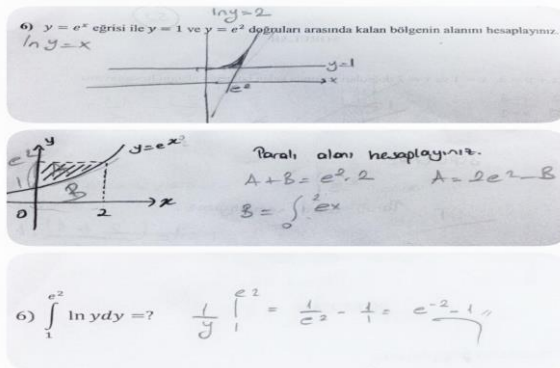 lny=2
6) y = eˣ eğrisi ile y = 1 ve y = e² doğruları arasında kalan bölgenin alanını hesaplayınız.
ln y = x
y=1
x
e²
y
e²
y=eˣ
1
B
0
2
x
Taralı alanı hesaplayınız.
A+B = e²·2 A = 2e² - B
B = ∫₀² ex
6) ∫₁^(e²) ln y dy =? 1/y |₁^(e²) = 1/e² - 1/1 = e⁻² - 1 //